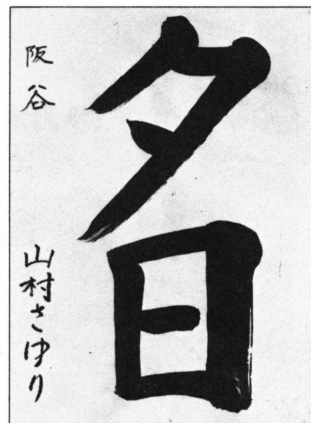 夕日
阪谷
山村さゆり